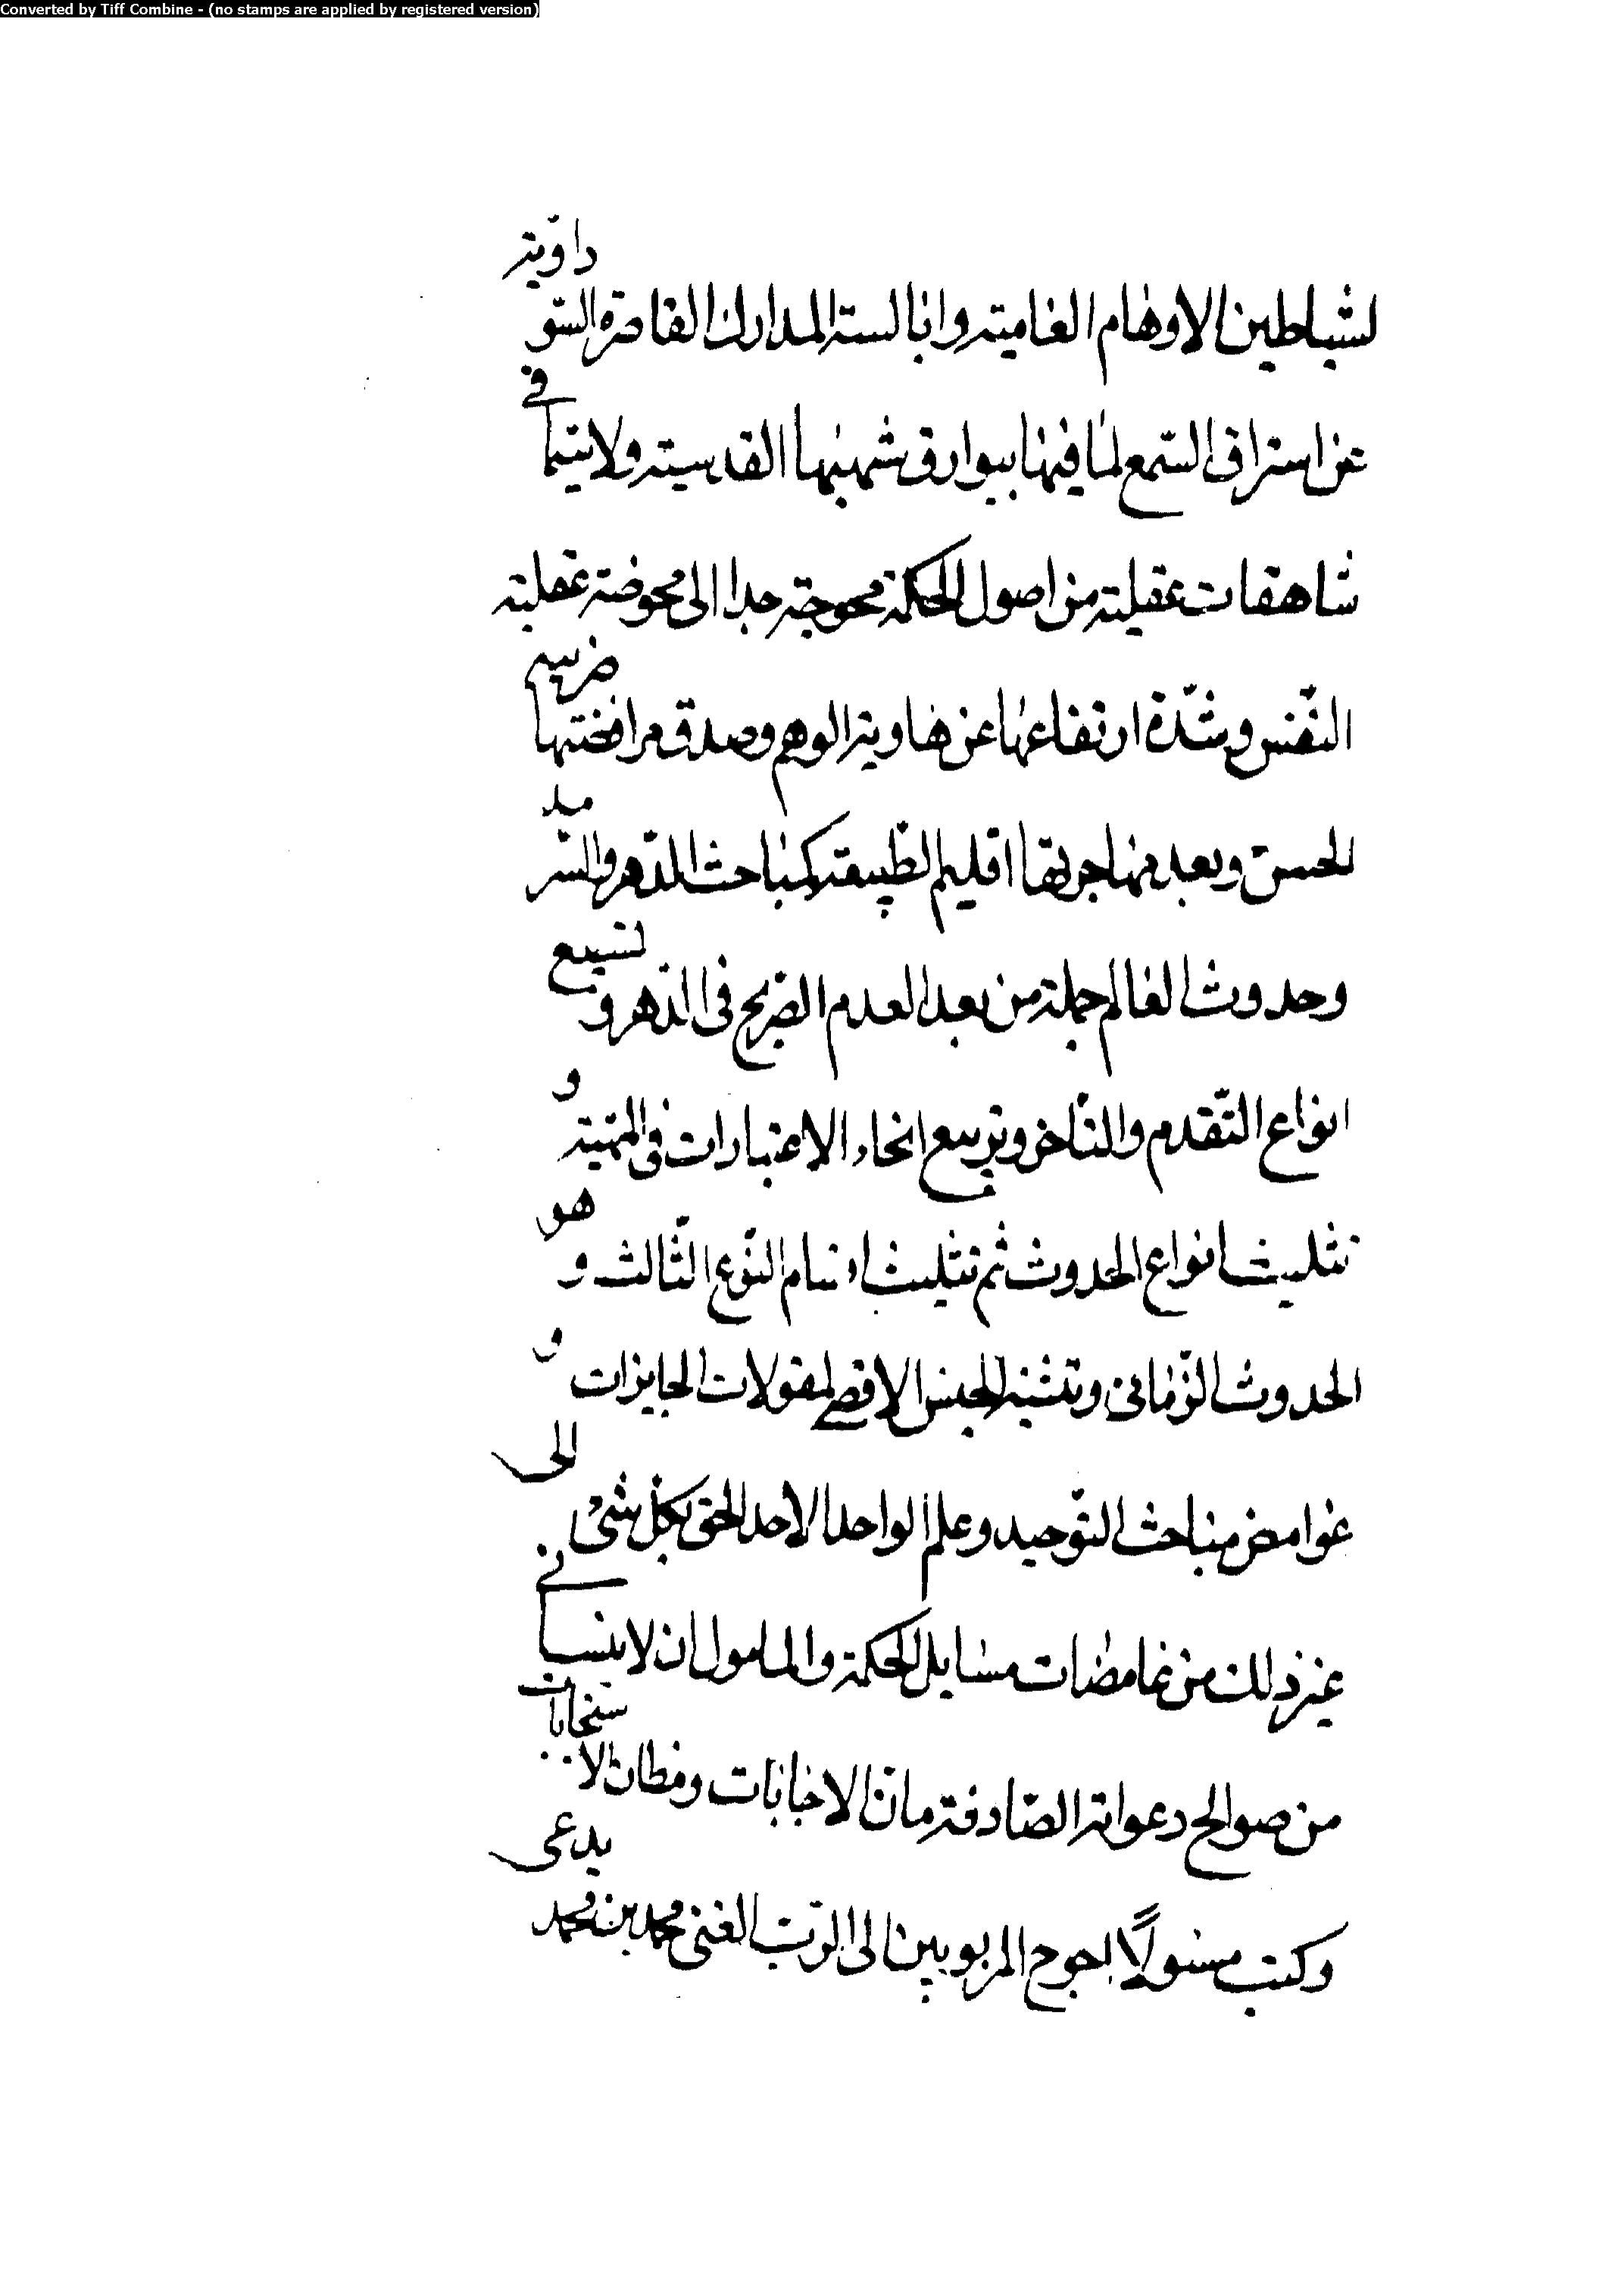 Converted by Tiff Combine - (no stamps are applied by registered version)
لشياطين الاوهام العامية وابالسة المدارك القاصرة السوداوية
عن استراق السمع لما فيها ببوارق شهبها القدسية ولاسيما في
شاهقات عقلية من اصول الحكمة محوجة جدا الى محوضة عقلية
النفس وشدة ارتفاعها عن هاوية الوهم وصدق مرافضتها
الحس وبعد مهاجرتها اقليم الطبيعة كمباحث الدهر والسرمد
وحدوث العالم جملة من بعد العدم الصريح في الدهر و
انواع التقدم والتأخر وتربيع انحاء الاعتبارات في المهية و
تثليث انواع الحدوث ثم تثليث اقسام النوع الثالث وهو
الحدوث الزماني وتثنية الجنس الاقصى لمقولات الجايزات و
غوامض مباحث التوحيد وعلم الواحد الاحد الحق بكل شئ الى
غير ذلك من غامضات مسايل الحكمة والمامول ان لا ينساني
من صوالح دعواته الصادفة مان الاجابات ومظان الاستجابات
وكتب مسئولا احوج المربوبين الى الرب الغني محمد بن محمد يدعى